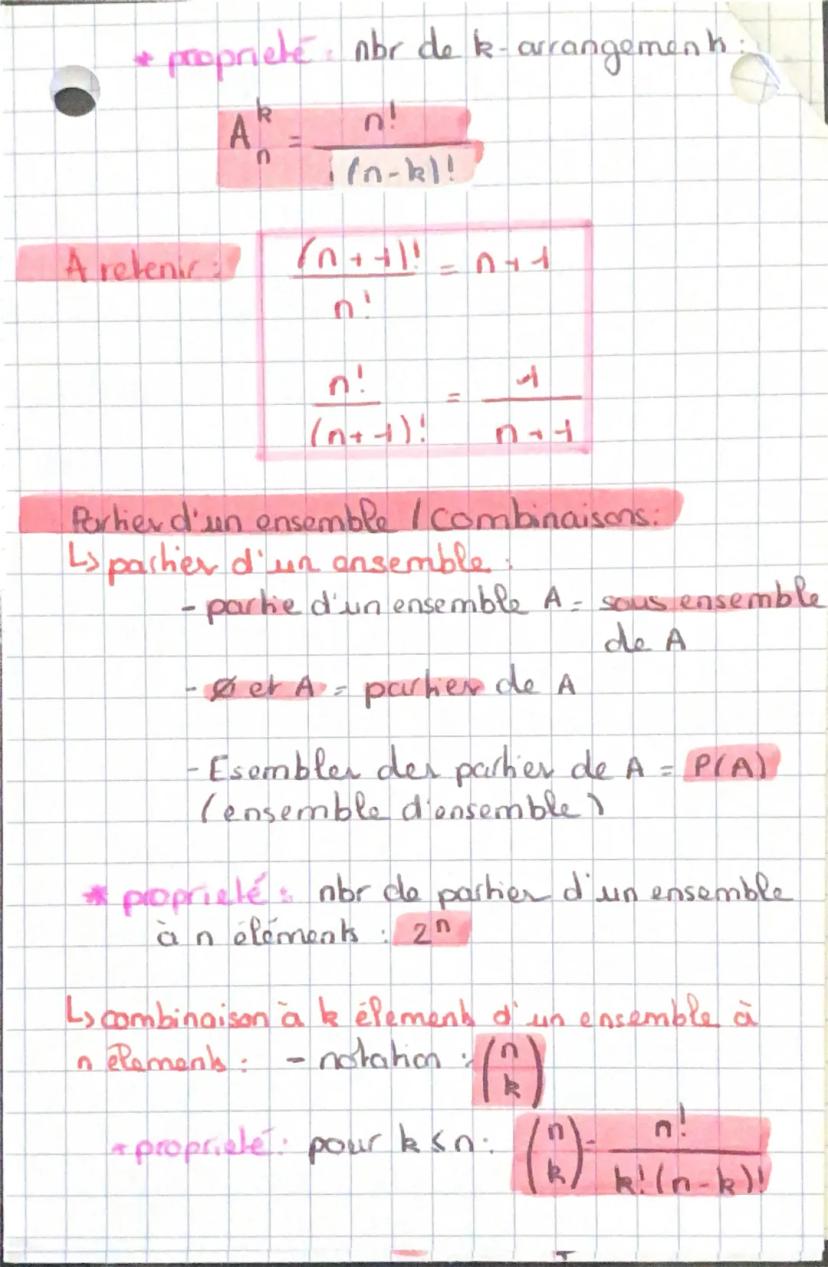 * propriété : nbr de k-arrangements :
A_n^k = n! / (n-k)!
A retenir : (n+1)! / n! = n+1
n! / (n+1)! = 1 / n+1
Parties d'un ensemble / Combinaisons :
↳ parties d'un ensemble :
- partie d'un ensemble A = sous ensemble
de A
- Ø et A = parties de A
- Esembles des parties de A = P(A)
(ensemble d'ensemble)
* propriété : nbr de parties d'un ensemble
à n éléments : 2^n
↳ combinaison à k éléments d'un ensemble à
n éléments : - notation : (n k)
* propriété : pour k ≤ n : (n k) = n! / k!(n-k)!